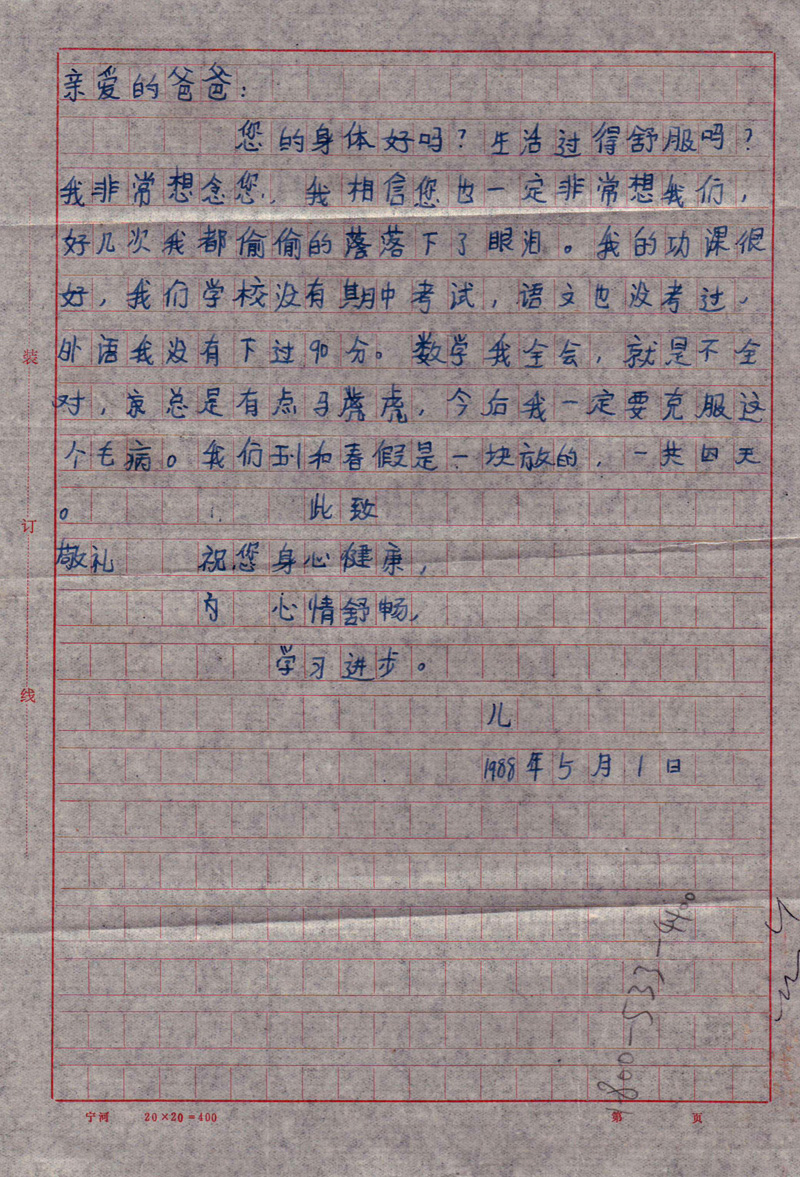 亲爱的爸爸：
您的身体好吗？生活过得舒服吗？
我非常想念您，我相信您也一定非常想我们，
好几次我都偷偷的落落下了眼泪。我的功课很
好，我们学校没有期中考试，语文也没考过，
外语我没有下过90分。数学我全会，就是不全
对，哀总是有点马虎虎，今后我一定要克服这
个毛病。我们到和春假是一块放的，一共四天
。 此致
敬礼 祝您身心健康，
内 心情舒畅，
学习进步。
儿
1988年5月1日
1-800-533-4400
装
订
线
宁河 20×20=400 第 页